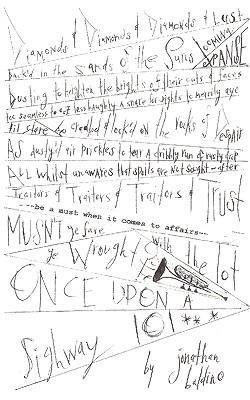 Diamonds & Diamonds & Diamonds & Lust
Back'd in the sands of the Suns looming EXPANSE
Dusting to brighten the brights of their cuts & faces
Too seamless to eat less haughty a snare for sights to merely eye
Til stare so creaked & lock'd on the rocks of DESPAIR
AS dusty'd air prickles to tear a dribbly run of rusty fact
ALL whilst unawares that spoils are not sought-after
Traitors & Traitors & Traitors & TRUST
--be a must when it comes to affairs--
MUSN'T ye save
ye Wrought With the lot
ONCE UPON A
Sighway 101***
by jonathan
baldino